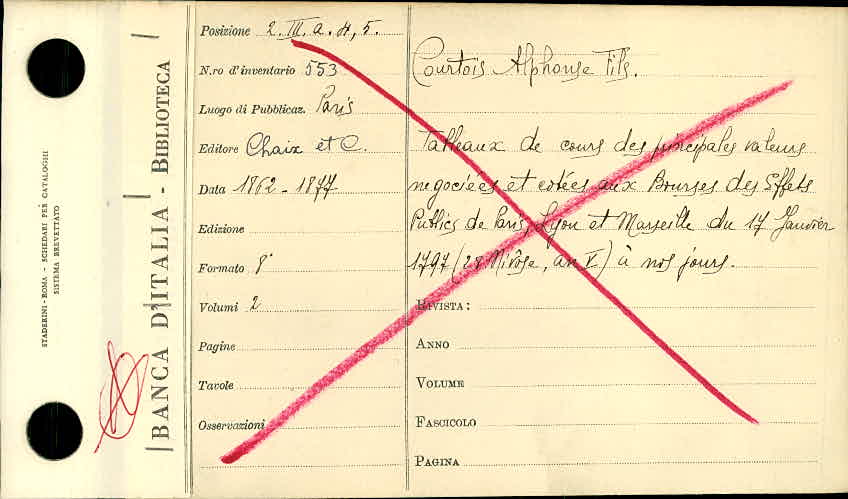 STADERINI - ROMA - SCHEDARI PER CATALOGHI
SISTEMA BREVETTATO
BANCA D'ITALIA - BIBLIOTECA
Posizione 2. III. a. 4, 5.
N.ro d'inventario 553
Luogo di Pubblicaz. Paris
Editore Chaix et C.
Data 1862 - 1877
Edizione
Formato 8°
Volumi 2
Pagine
Tavole
Osservazioni
Courtois Alphonse Fils.
Tableaux de cours des principales valeurs
negociées et cotées aux Bourses des Effets
Publics de Paris, Lyon et Marseille du 17 Janvier
1797 (28 Nivôse, an V) à nos jours.
RIVISTA:
ANNO
VOLUME
FASCICOLO
PAGINA